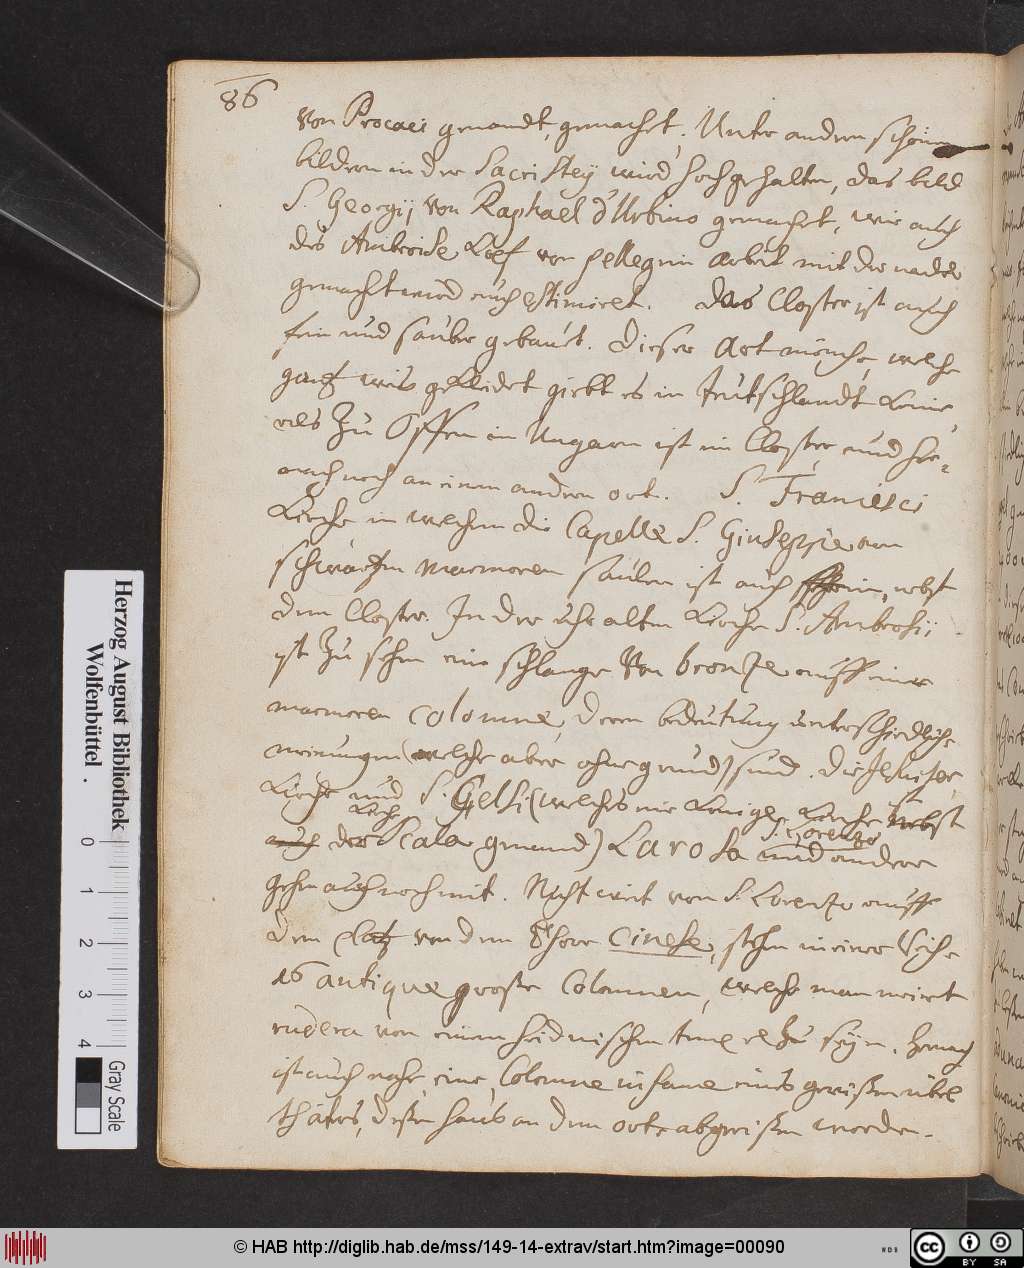 86
von Procaci genandt, gemacht. Unter andern schönen
bildern in der Sacristey wird hochgehalten, das bild
S. Georgij von Raphael d'Urbino gemacht, wie auch
des Ambrosie Kopf von pellegrin arbeit mit der nadel
gemacht wird auch estimiret. das Closter ist auch
fein und sauber gebauet. Dieser Art mönche, welche
gantz weis gekleidet giebt es in Teutschlandt keine,
als zu Offen in Ungarn ist ein Closter und her-
nach noch an einem andern ort. S. Francisci
Kirche in welcher die Capelle S. Giuseppe von
schwartzen marmoren säulen ist auch fein, nebst
dem Closter. In der uhralten Kirche S. Ambrosij
ist zu sehen eine schlange von bronze auff einer
marmoren colonne, deren bedeutung unterschiedliche
meinungen (welche aber ohne grund) sind. Die Jesuiter
Kirche und S. Celsi (welches eine Kirche nebst
Kirche S. Lorenzo
auch der Scala genand) La rosa und andere
gehen auch noch mit. Nicht weit von S. Lorenzo auff
dem platz von dem Thore Cinese, stehen in einer Reihe
16 antique große Colonnen, welche man meinet
rudera von einem heidnischen tempel zu seyn. Hernach
ist auch nahe eine Colonne infame eines gewißen übel
thäters, deßen haus an dem orte abgerißen worden.
Herzog August Bibliothek
Wolfenbüttel
0 1 2 3 4
Gray Scale
© HAB http://diglib.hab.de/mss/149-14-extrav/start.htm?image=00090
WDB
cc
BY SA